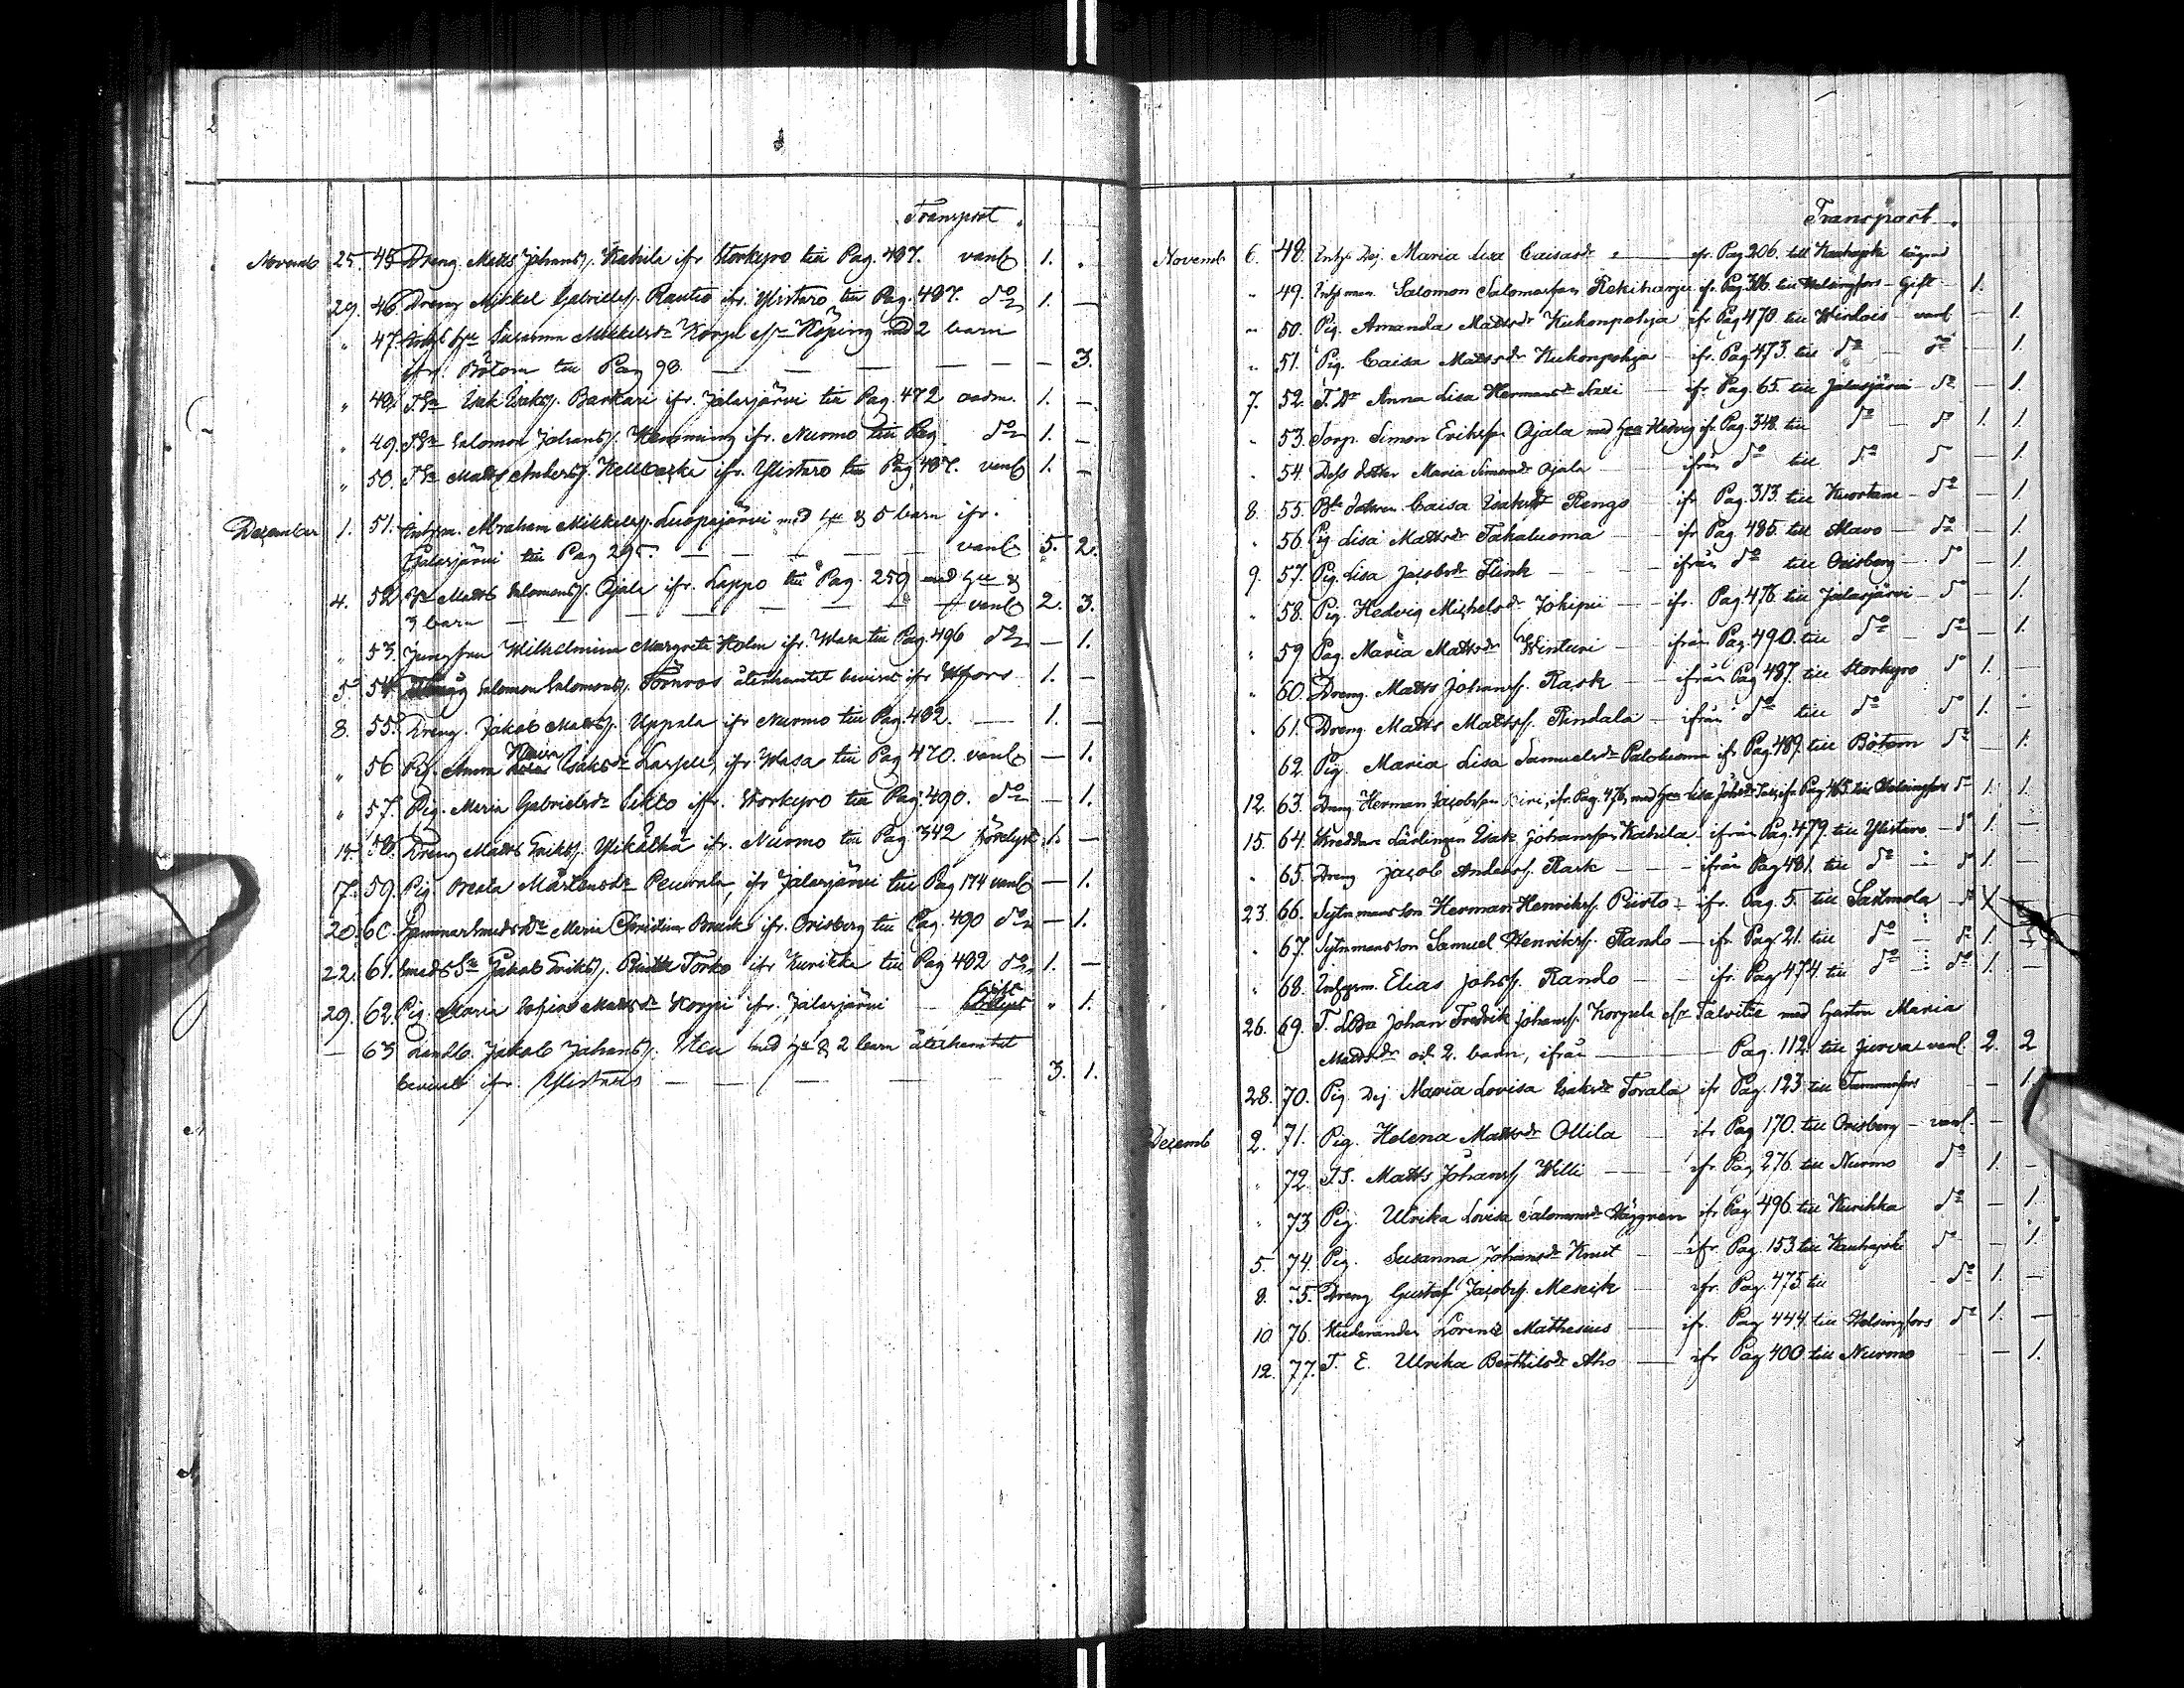 Transport
Novemb 25. 45 Dreng Matts Johanss. Kahila ifr Storkyro till Pag. 487. vanl 1. .
29. 46 Dreng Mikkel Gabrielss. Rautio ifr. Ylistaro till Pag. 487. do 1. —
" 47 Susanna Mikkelsdr Korpi Köping med 2 barn
ifr. Bötom till Pag 98. — — — — — — 3.
" 48. Isak Isakss. Barkari ifr. Jalasjärvi till Pag. 472 1. —
" 49. Salomon Johanss. Hemming ifr. Nurmo till Pag do 1. —
" 50. Matts Anderss. ifr. Ylistaro till Pag 487. vanl 1. —
December 1. 51. Abraham Mikkelss. Luopajärvi med & 5 barn ifr.
Jalasjärvi till Pag 295. — — — — vanl 5. 2.
4. 52. Matts Salomonss. Ojala ifr. Lappo till Pag. 259 med &
3 barn — — — — — — vanl 2. 3.
" 53. Jungfrau Wilhelmina Margreta Holm ifr. Wasa till Pag. 496 do — 1.
5 54 Salomon Salomonss. Törnroos återhemtet beviset ifr 1. —
8. 55. Dreng. Jakob Matss. Uppala ifr Nurmo till Pag. 482. — 1. —
" 56 Pig. Anna Maria Isaksdr ifr. Wasa till Pag 470. vanl — 1.
" 57. Pig. Maria Gabrielsdr ifr. Storkyro till Pag. 490. do — 1.
58. Dreng Matts Erikss. ifr. Nurmo till Pag 342 1. —
17. 59. Pig. Beata Mårtensdr Peurala, ifr Jalasjärvi till Pag 174 vanl — 1.
20. 60. Maria Christina ifr. Orisberg till Pag. 490 do — 1.
22. 61. Jakob Erikss. Torko ifr Kurikka till Pag 482 do 1. —
29. 62. Pig. Maria Sofia Mattsdr Korpi ifr. Jalasjärvi " 1.
— 63 Jakob Johanss. med & 2 barn återhemtet
beviset ifr. Ylistaro — — — — 3. 1.
Transport
Novemb. 6. 48. Maria Lisa Caisasdr — ifr. Pag. 206. till Kauhajoki
" 49. Salomon Salomonsson Rekiharju ifr. Pag. till Helsingfors — Gift 1.
" 50. Pig. Amanda Mattsdr Kuhonpohja ifr Pag 470. till Wirdois vanl — 1.
" 51. Pig. Caisa Mattsdr Kukonpohja ifr. Pag 473. till do — do — 1.
7. 52. T. Dr Anna Lisa Hermansdr ifr. Pag. 65. till Jalasjärvi — do — 1.
" 53. Torp. Simon Eriksson Ojala med Hedvig ifr. Pag. 348. till do — do 1. 1.
" 54 Dess dotter Maria Simonsdr Ojala — ifrån do till do do — 1.
8. 55. Caisa Isaksdr Rengo — ifr. Pag. 313. till Kuortane — do — 1.
" 56. Pig Lisa Mattsdr Takaluoma — ifr Pag. 485. till Alavo — do — 1.
9. 57. Pig. Lisa Jacobsdr Flink — ifrån do till Orisberg — do — 1.
" 58. Pig. Hedvig Michelsdr Jokipii — ifr. Pag. 476. till Jalasjärvi — do — 1.
" 59. Pig. Maria Mattsdr Wintturi — ifrån Pag. 490. till do — do — 1.
" 60. Dreng. Matts Johanss. Rask — ifrån Pag 487. till Storkyro do 1. —
" 61. Dreng. Matts Mattss. Rindala — ifrån do till do do 1. —
62. Pig. Maria Lisa Samuelsdr Paloluoma ifr Pag. 489. till Bötom do — 1.
12. 63. Dreng Herman Jacobsson ifr. Pag. 476, med Lisa ifr Pag 465. till Helsingfors do 1. 1.
15. 64. Skreddare Lärlingen Isak Johansson Kahila ifrån Pag. 479. till Ylistaro — do 1. —
" 65. Dreng Jacob Anderss. Rask — ifrån Pag 481. till do — do 1. —
23. 66. Sytn mans son Herman Henrikss. Piirto — ifr. Pag. 5. till Sastmola — do X —
" 67. Sytn mans son Samuel Henrikss. Rando — ifr. Pag. 21. till do — do 1. —
" 68. Elias Johss. Rando — ifr. Pag 474. till do — do 1. —
26. 69. Johan Fredrik Johanss. Korpela Talvitie med hustru Maria
Mattsdr och 2. barn, ifrån — Pag. 112. till Jurva — vanl. 2. 2
28. 70. Pig. Dej Maria Lovisa Isaksdr Torala ifr Pag. 123 till Tammerfors — 1.
Decemb 2. 71. Pig. Helena Mattsdr Ollila — ifr Pag 170. till Orisberg — vanl. —
" 72. T.S. Matts Johanss. Willi — ifr Pag 276. till Nurmo do 1. —
" 73 Pig. Ulrika Lovisa Salomonsdr Häggren ifr Pag 496. till Kurikka do — 1.
5. 74. Pig. Susanna Johansdr Knut — ifr. Pag. 153. till Kauhajoki do — 1.
8. 75. Dreng Gustaf Jacobss. — ifr. Pag. 475. till do 1. —
10 76. Studeranden Lorentz Mathesius — ifr. Pag 444. till Helsingfors do 1. —
12. 77. T. E. Ulrika Berthilsdr Aho — ifr Pag 400 till Nurmo — 1.